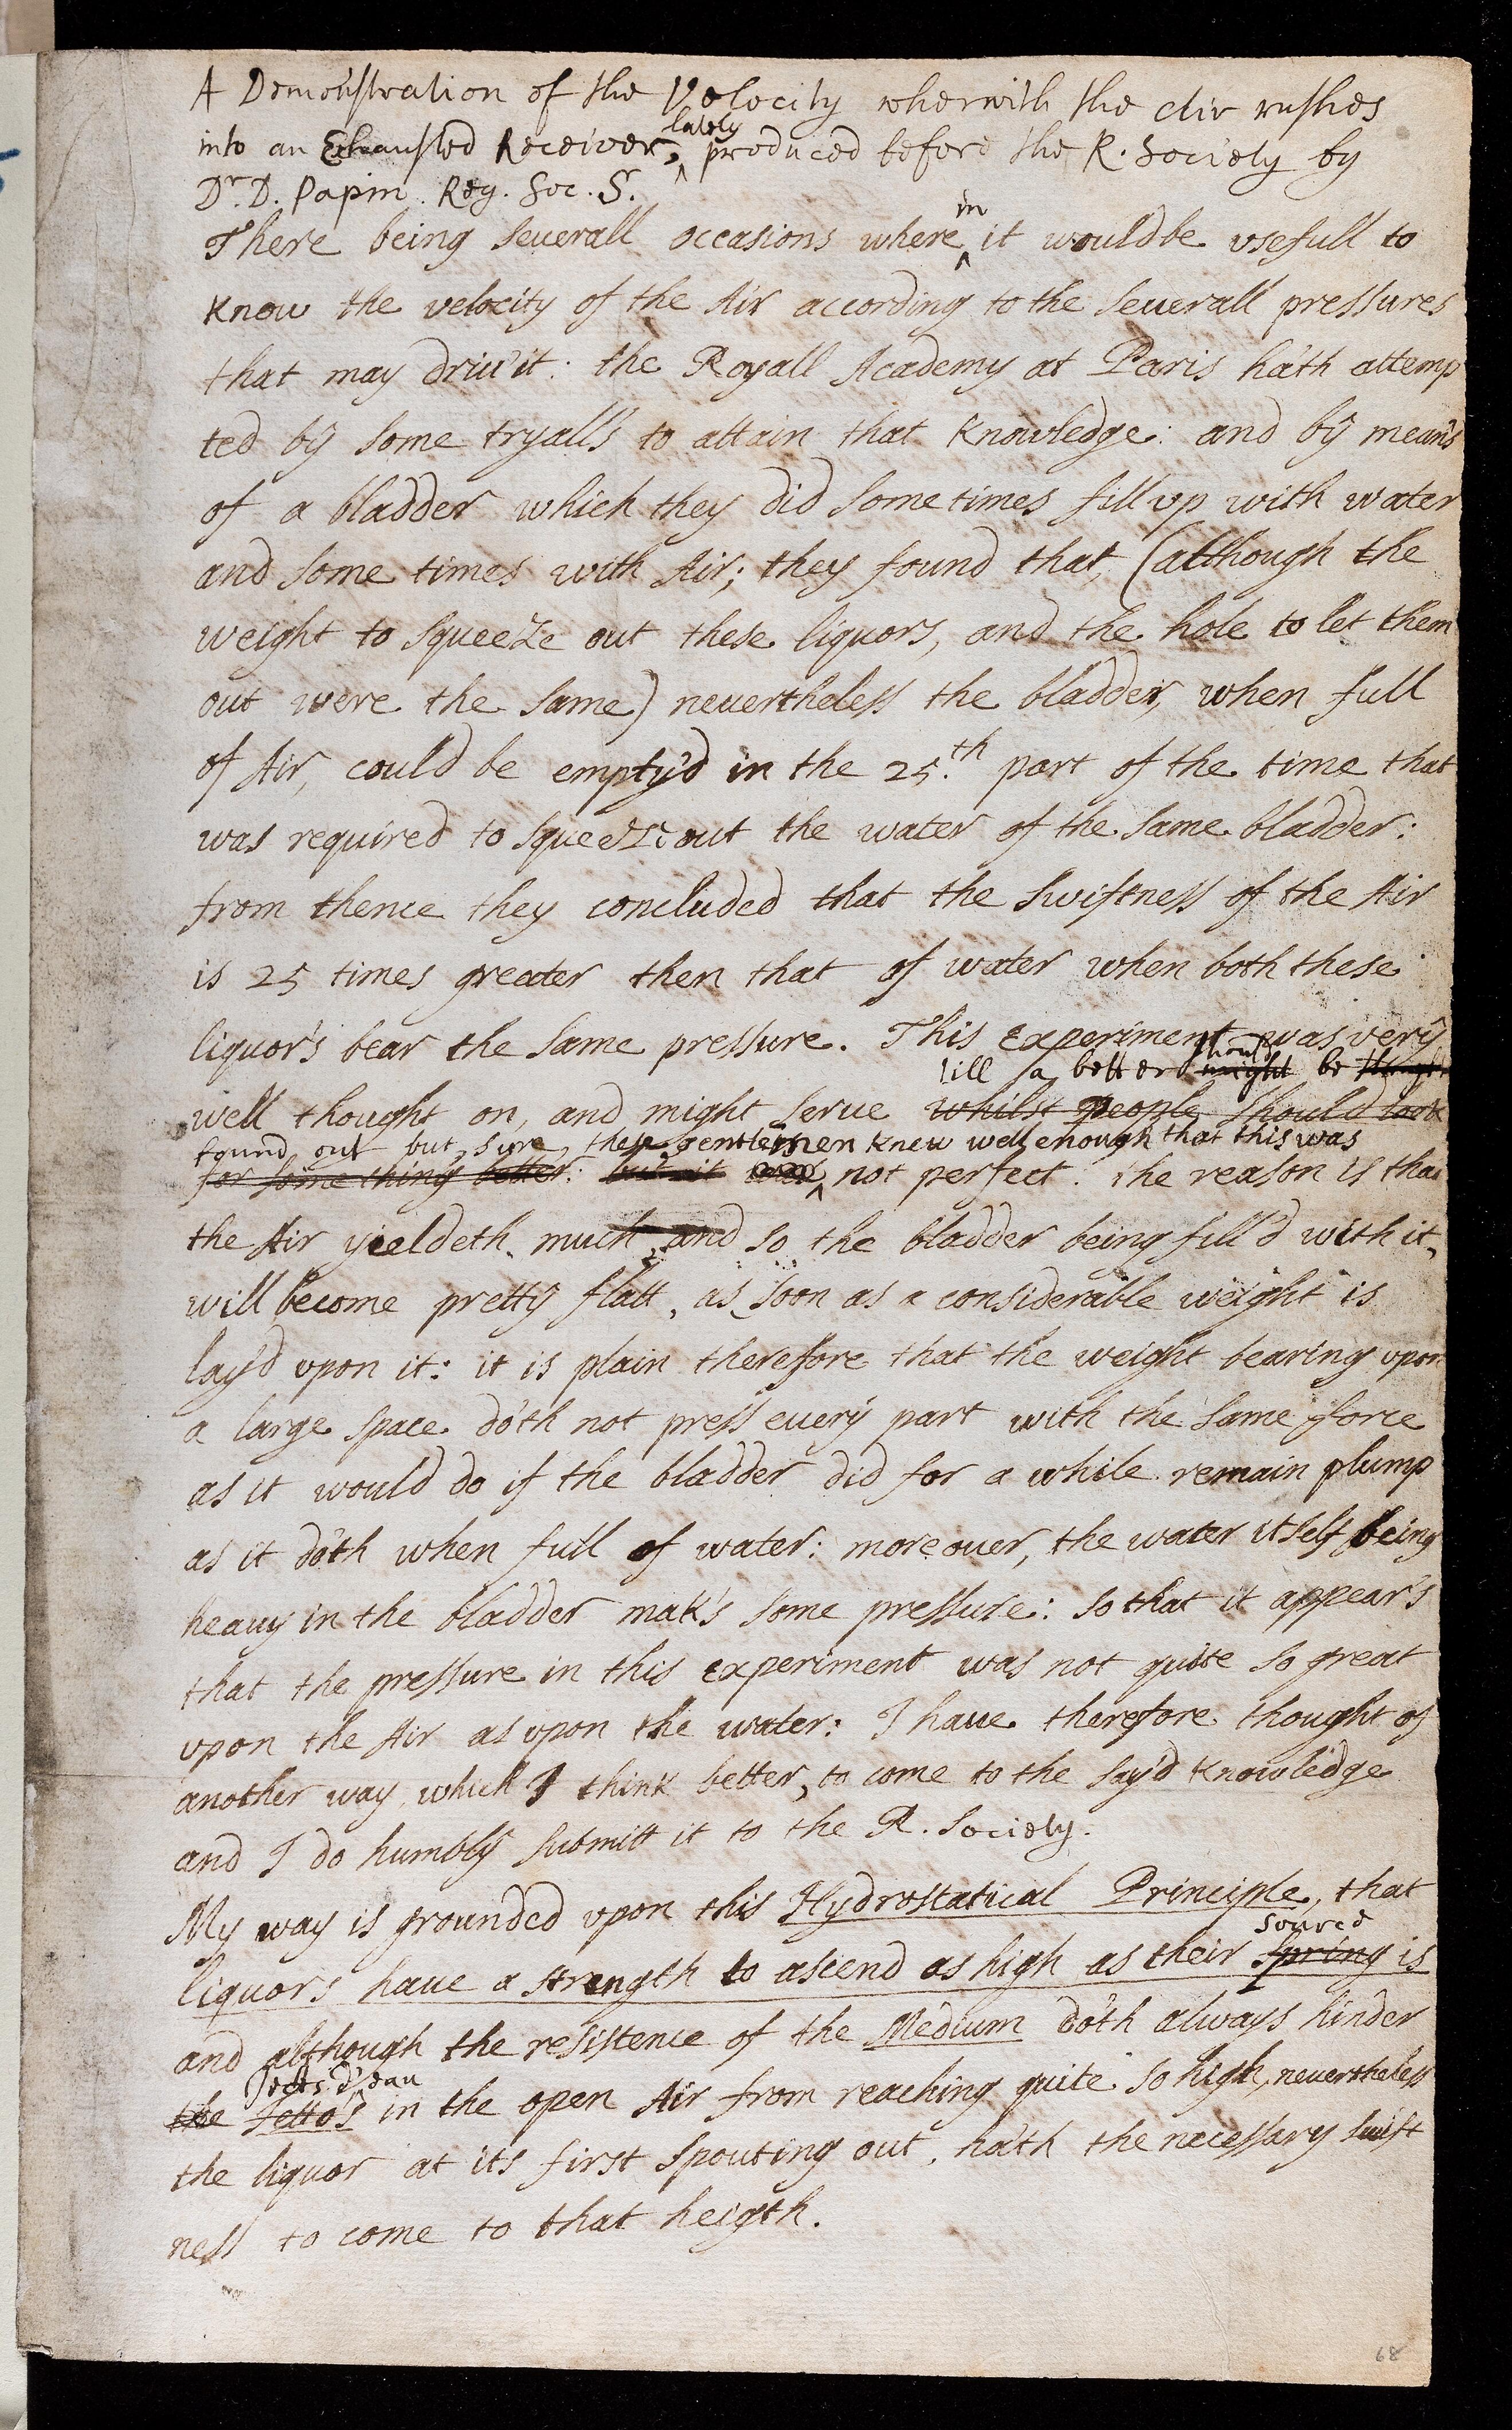 A Demonstration of the Velocity wherwith the Air rushes
into an Exhausted Receiver, lately produced before the R. Society by
Dr. D. Papin. Reg. Soc. S.
There being seuerall occasions where in it would be usefull to
know the velocity of the Air according to the seuerall pressures
that may driu'it: the Royall Academy at Paris ha'th attemp
ted by some tryall's to attain that knowledge: and by mean's
of a bladder which they did some times fill vp with water
and some times with Air; they found that, (although the
weight to squeeze out these liquors, and the hole to let them
out were the same) neuertheless the bladder, when full
of Air, could be empty'd in the 25.th part of the time that
was required to squeeze out the water of the same bladder:
from thence they concluded that the swiftness of the Air
is 25 times greater then that of water when both these
liquor's bear the same pressure. This experiment was very
till a better might should be
well thought on, and might serue whilst people should look
found out but sure these gentlemen knew well enough that this was
for some thing better: but it was not perfect. The reason is that
the Air yieldeth much, and so the bladder being fill'd with it,
will become pretty flatt, as soon as a considerable weight is
lay'd vpon it: it is plain therefore that the weight bearing vpon
a large space do'th not press euery part with the same force
as it would do if the bladder did for a while remain plump
as it do'th when full of water: more ouer, the water itself being
heauy in the bladder mak's some pressure: so that it appear's
that the pressure in this experiment was not quite so great
vpon the Air as vpon the water: I haue therefore thought of
another way which I think better, to come to the say'd knowledge
and I do humbly submitt it to the R. Society.
My way is grounded vpon this Hydrostatical Principle, that
source
liquors haue a strength to ascend as high as their spring is
and although the resistence of the Medium do'th always hinder
Jects d'eau
the Jetto's in the open Air from reaching quite so high, neuertheless
the liquor at its first spouting out, ha'th the necessary swift
ness to come to that heigth.
68